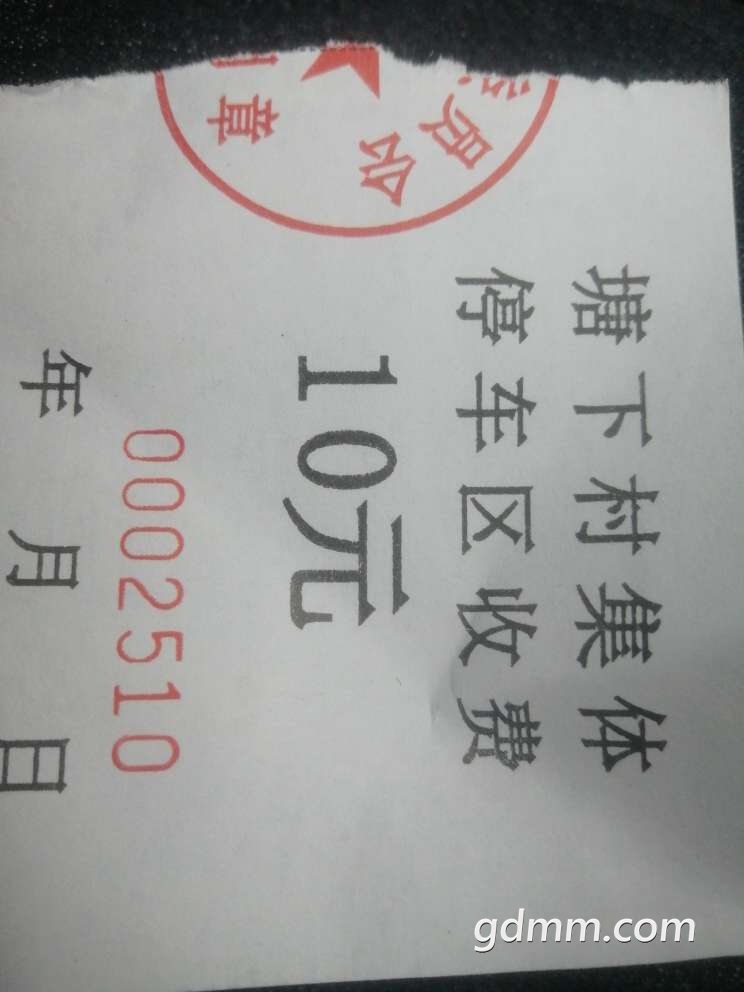 塘下村集体
停车区收费
10元
0002510
年 月 日
章
gdmm.com